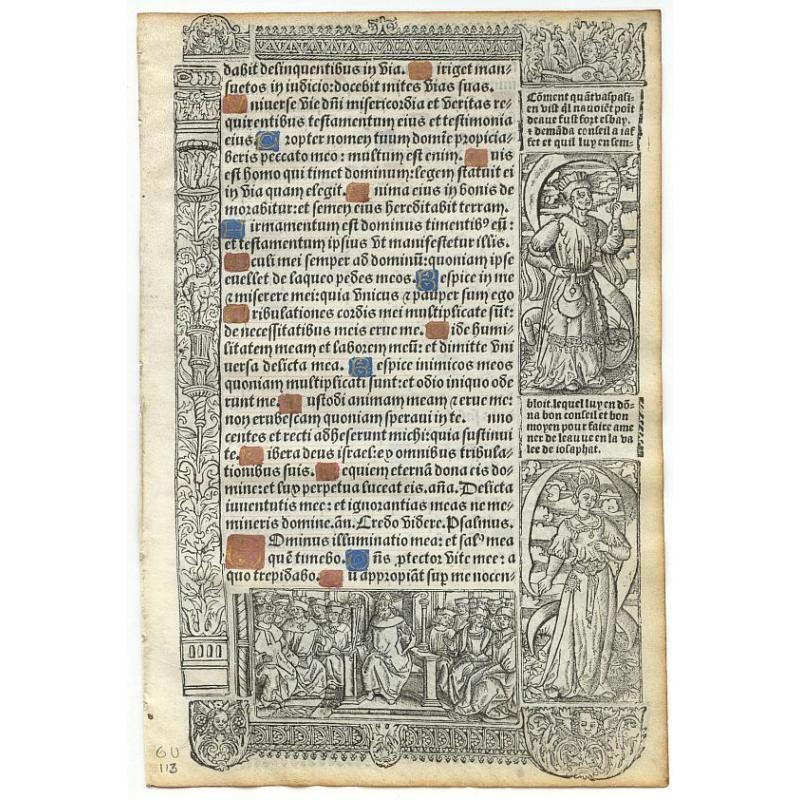 dabit delinquentibus in via. iriget man-
suetos in iudicio: docebit mites vias suas.
niverse vie dñi misericordia et veritas re-
quirentibus testamentum eius et testimonia
eius. ropter nomen tuum domine propicia-
beris peccato meo: multum est enim. uis
est homo qui timet dominum: legem statuit ei
in via quam elegit. nima eius in bonis de
morabitur: et semen eius hereditabit terram.
irmamentum est dominus timentibꝰ eũ:
et testamentum ipsius vt manifestetur illis.
culi mei semper ad dominũ: quoniam ipse
euellet de laqueo pedes meos. espice in me
⁊ miserere mei: quia vnicus ⁊ pauper sum ego
ribulationes cordis mei multiplicate sũt:
de necessitatibus meis erue me. ide humi-
litatem meam et laborem meũ: et dimitte vni
uersa delicta mea. espice inimicos meos
quoniam multiplicati sunt: et odio iniquo ode
runt me. ustodi animam meam ⁊ erue me:
non erubescam quoniam speraui in te. nno
centes et recti adheserunt michi: quia sustinui
te. ibera deus israel: ex omnibus tribula-
tionibus suis. equiem eternã dona eis do-
mine: et lux perpetua luceat eis. añã. Delicta
iuuentutis mee: et ignorantias meas ne me-
mineris domine. añ. Credo videre. Psalmus.
Dominus illuminatio mea: et salꝰ mea
quẽ timebo. ñs ꝓtector vite mee: a
quo trepidabo. ũ appropiãt suꝑ me nocen-
Cõment quãt vaspasi-
en vist ql nauoiẽt poit
deaue fust fort esbay.
⁊ demãda conseil a iaf
fet et quil luy en sem-
bloit. lequel luy en dõ=
na bon conseil et bon
moyen pour faire ame
ner de leaue en la va
lee de iosaphat.
GU
113